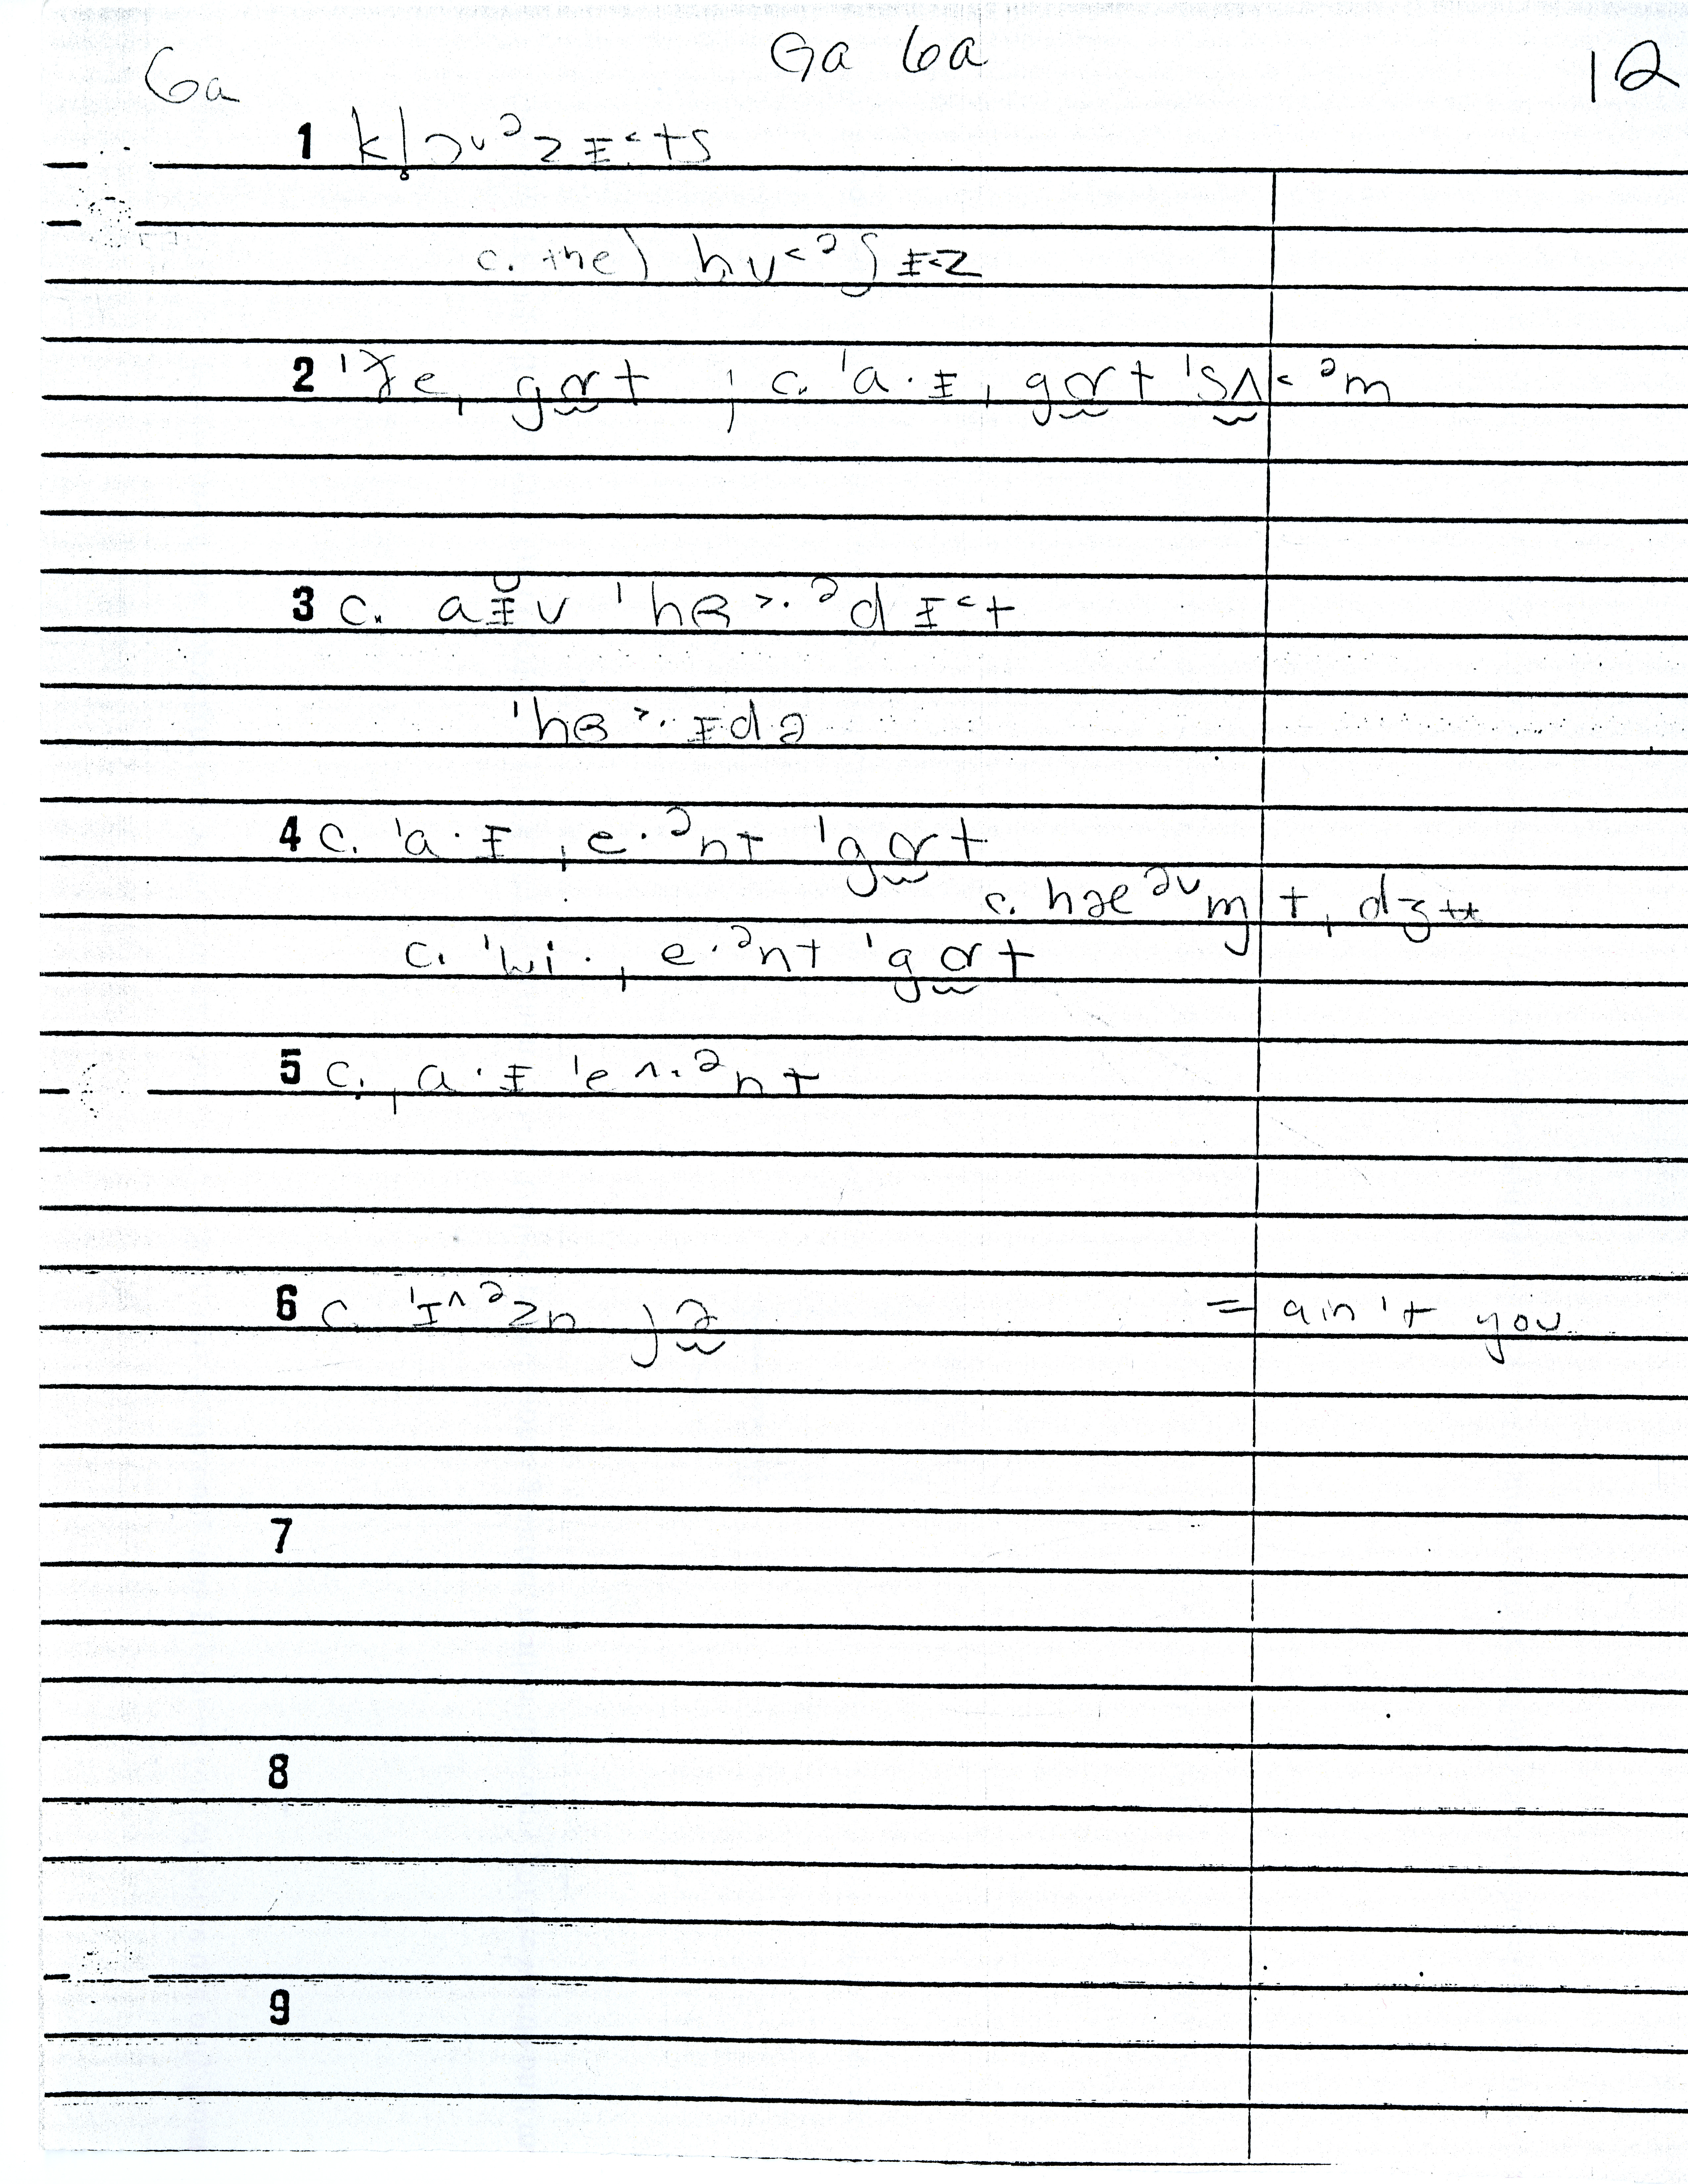 6a Ga 6a 12
1 kl̥ɔᵛᵊzɪ˂ts
c. the) hʊ˂ᵊʃɪ˂z
2 ˈðe ˌgɑ̰rt ; c. ˈa·ɪ ˌgɑ̰rt ˈsʌ̰˂ᵊm
3 c. aɪ̆v ˈhɜ˃·ᵊd ɪ˂t
ˈhɜ˃·ɪdə
4 c. ˈa·ɪ ˌe·ᵊnt ˈgɑ̰rt
c. hæᵊᵛm
c. ˈwi· ˌe·ᵊnt ˈgɑ̰rt
5 c. ˌa·ɪ ˈe˄·ᵊnt
6 c. ˈɪ˄ᵊzn jə̰ = ain't you
7
8
9